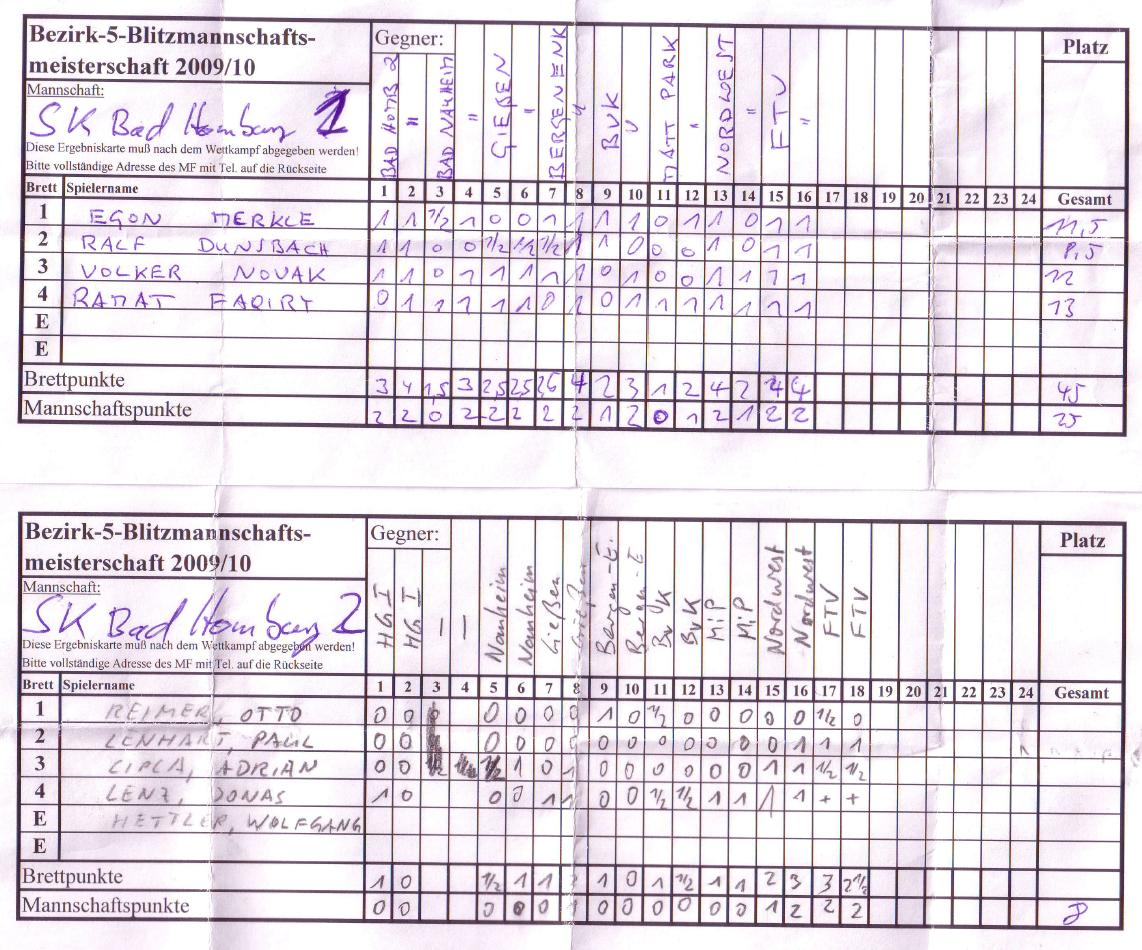 Bezirk-5-Blitzmannschafts-
meisterschaft 2009/10
Mannschaft:
SK Bad Homburg 1
Diese Ergebniskarte muß nach dem Wettkampf abgegeben werden!
Bitte vollständige Adresse des MF mit Tel. auf die Rückseite
Gegner: BAD HOMB 2 " BAD NAUHEIM " GIEßEN " BERGENENK " BVK " MATT PARK " NORDWEST " FTV "
Platz
Brett Spielername 1 2 3 4 5 6 7 8 9 10 11 12 13 14 15 16 17 18 19 20 21 22 23 24 Gesamt
1 EGON MERKLE 1 1 1/2 1 0 0 1 1 1 1 0 1 1 0 1 1 11,5
2 RALF DUNSBACH 1 1 0 0 1/2 1/2 1/2 1 1 0 0 0 1 0 1 1 8,5
3 VOLKER NOVAK 1 1 0 1 1 1 1 1 0 1 0 0 1 1 1 1 12
4 RAMAT FAQIRY 0 1 1 1 1 1 0 1 0 1 1 1 1 1 1 1 13
E
E
Brettpunkte 3 4 1,5 3 2,5 2,5 2,5 4 2 3 1 2 4 2 4 4 45
Mannschaftspunkte 2 2 0 2 2 2 2 2 1 2 0 1 2 1 2 2 25
Bezirk-5-Blitzmannschafts-
meisterschaft 2009/10
Mannschaft:
SK Bad Homburg 2
Diese Ergebniskarte muß nach dem Wettkampf abgegeben werden!
Bitte vollständige Adresse des MF mit Tel. auf die Rückseite
Gegner: HG I HG I — — Nauheim Nauheim Gießen Gießen Bergen-E. Bergen-E BvK BvK MiP MiP Nordwest Nordwest FTV FTV
Platz
Brett Spielername 1 2 3 4 5 6 7 8 9 10 11 12 13 14 15 16 17 18 19 20 21 22 23 24 Gesamt
1 REIMER, OTTO 0 0 0 0 0 0 1 0 1/2 0 0 0 0 0 1/2 0
2 LENHART, PAUL 0 0 0 0 0 0 0 0 0 0 0 0 0 1 1 1
3 CIPCA, ADRIAN 0 0 1/2 1 0 1 0 0 0 0 0 0 1 1 1/2 1/2
4 LENZ, JONAS 1 0 0 0 1 1 0 0 1/2 1/2 1 1 1 1 + +
E HETTLER, WOLFGANG
E
Brettpunkte 1 0 1/2 1 1 2 1 0 1 1/2 1 1 2 3 3 2 1/2
Mannschaftspunkte 0 0 0 0 0 1 0 0 0 0 0 0 1 2 2 2 8